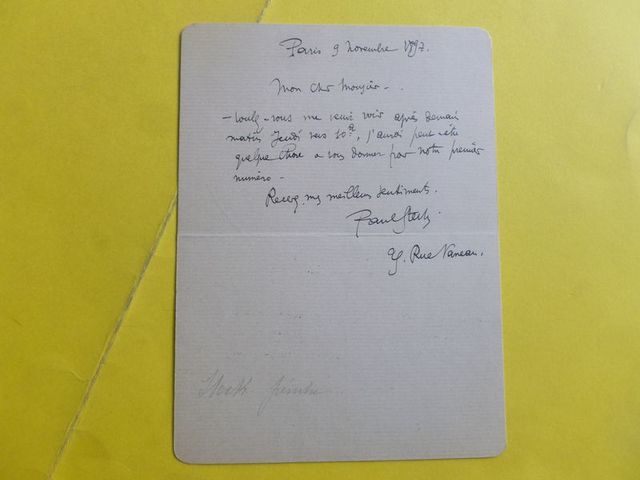 Paris 9 novembre 1897.
Mon cher Monsieur -
- Voulez-vous me venir voir après demain
matin Jeudi vers 10h, j'aurai peut-etre
quelque chose a vous donner pour notre premier
numéro -
Recevez mes meilleurs sentiments.
Paul
Rue Vaneau.
peintre